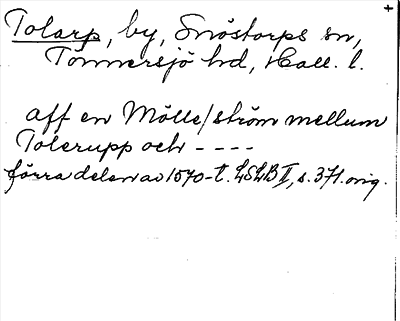 Tolarp, by, Snöstorps sn,
Tönnersjö hd, Hall. l.
aff en Mölle/ström mellum
Tolerupp och - - - -
förra delen av 1570-t. LSLB II, s. 371. orig.